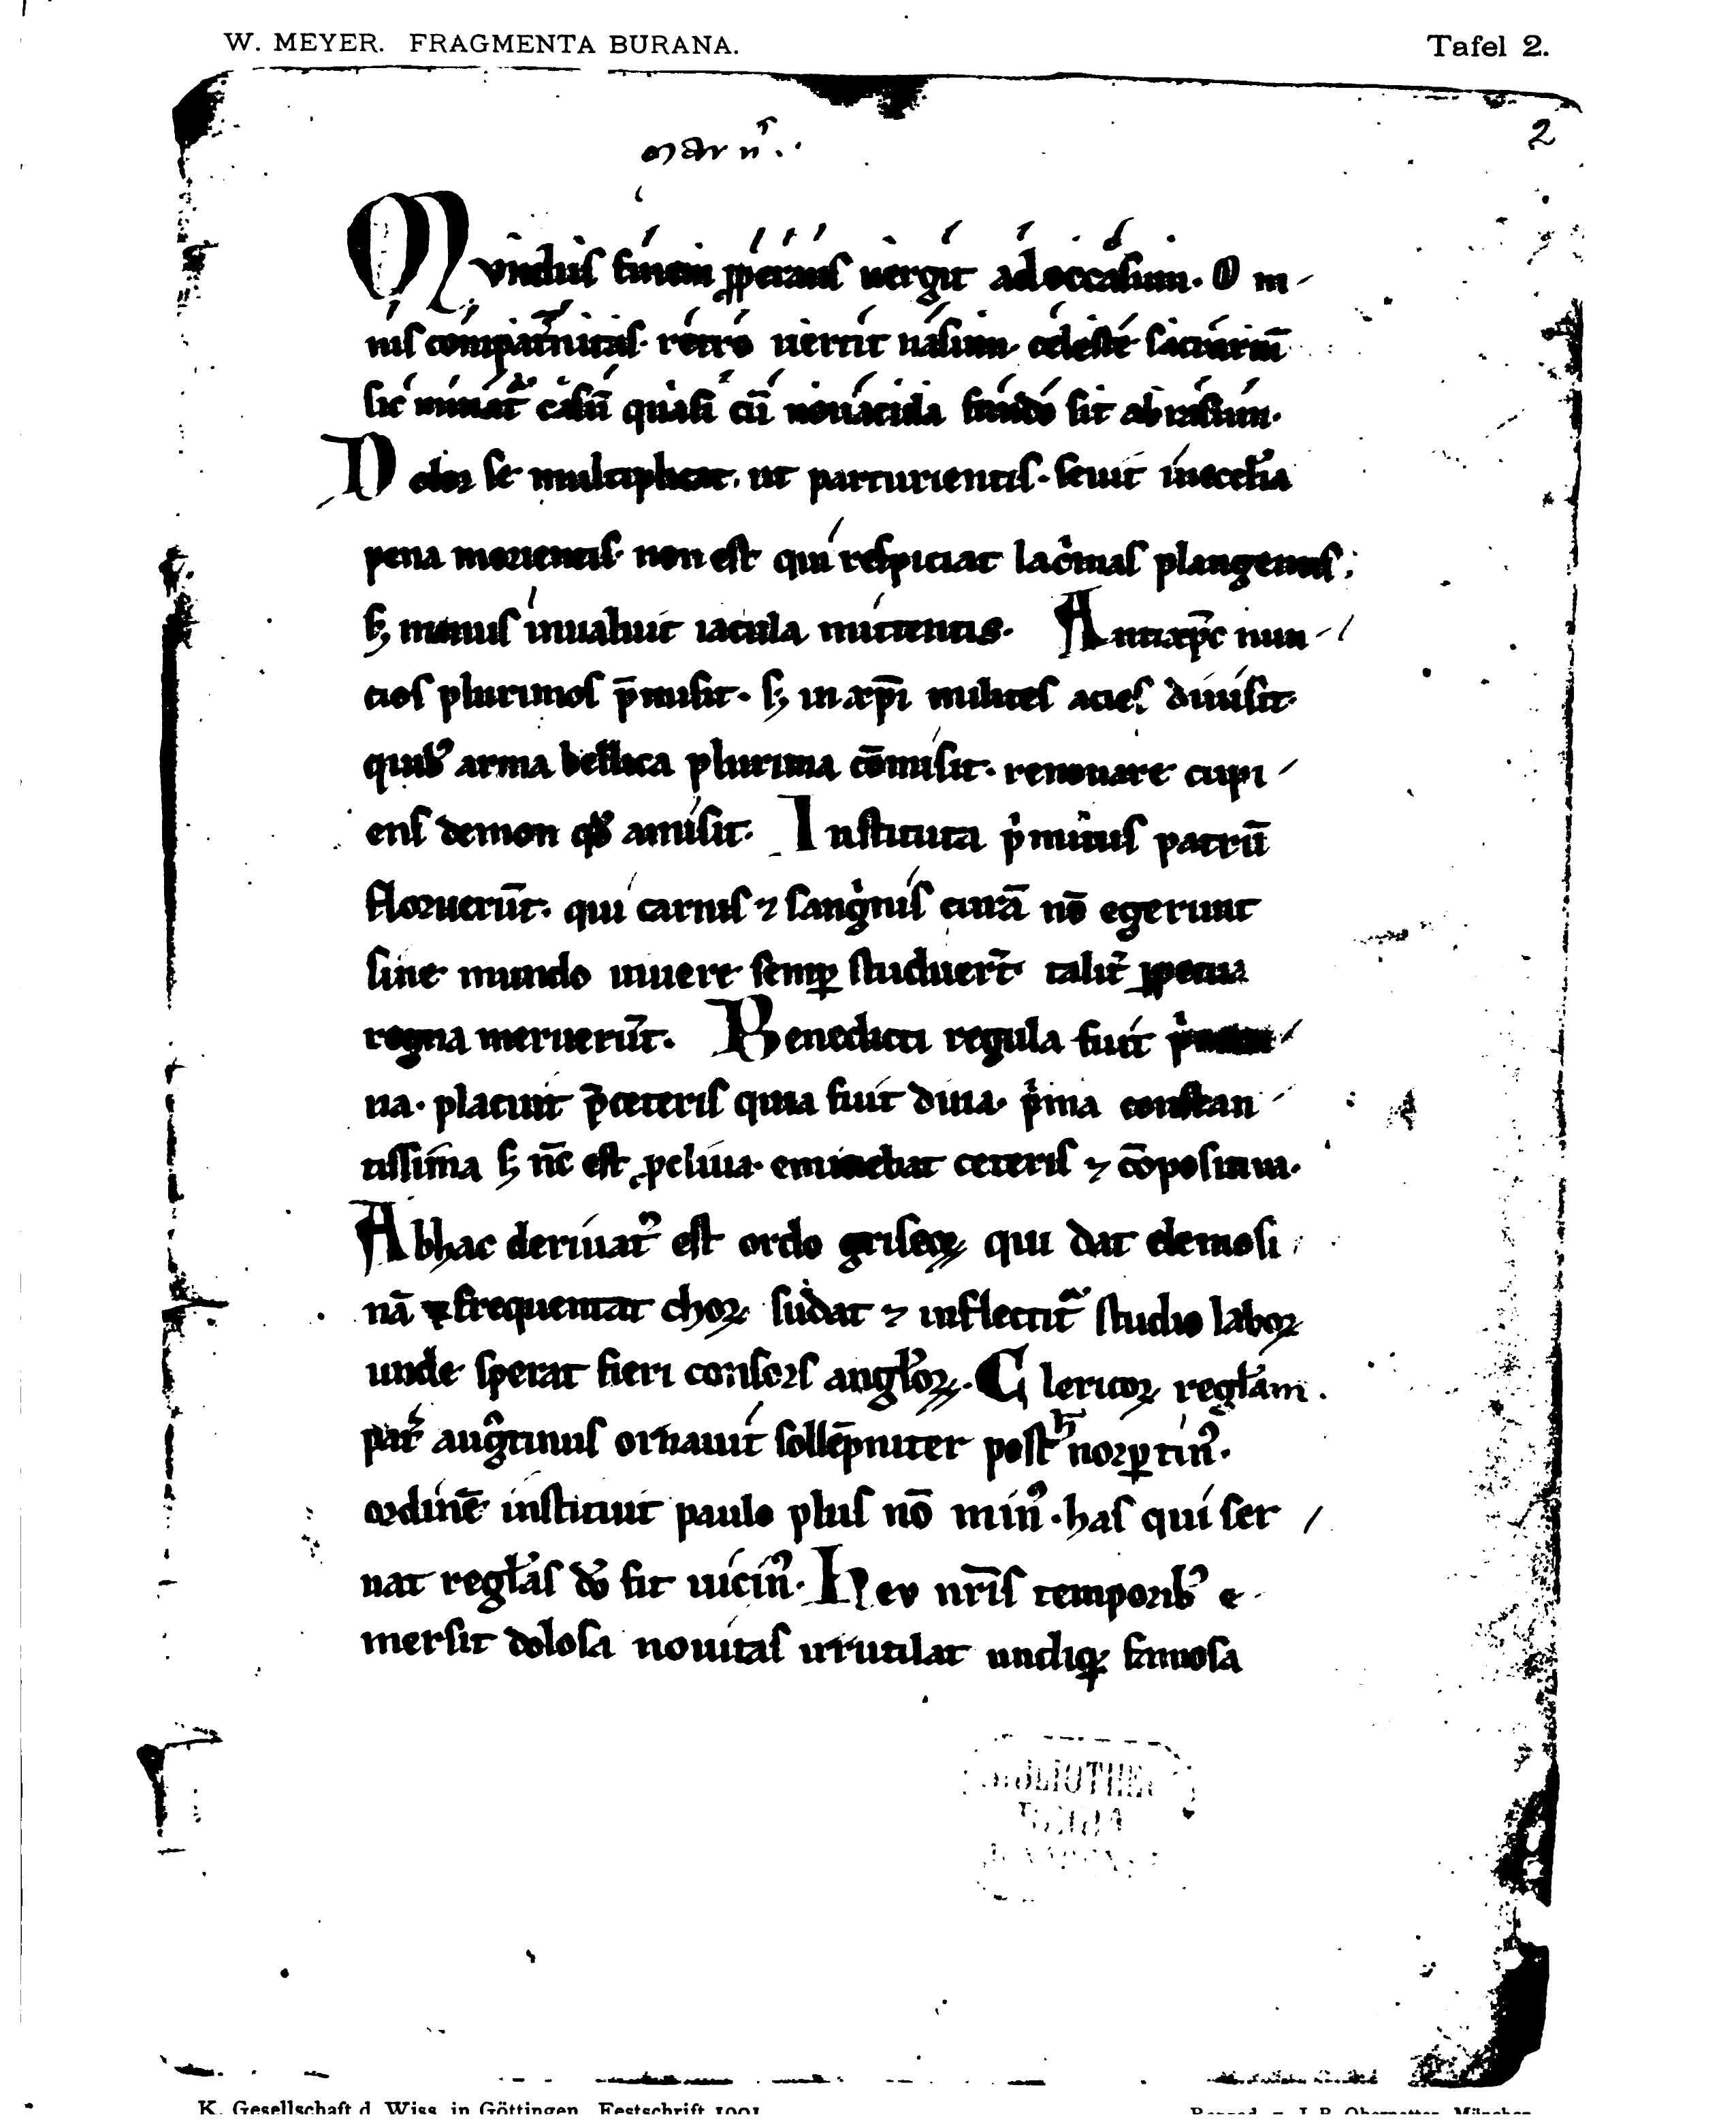 W. MEYER. FRAGMENTA BURANA. Tafel 2.
2
Mundus finem ꝓperans uergit ad occasum. O m
nis compat̾nitas. retro uertit nasum. celeste sacᷓariū
sic minat᷑ casū quasi cū nouacula funda sit ab rasum.
Dolor se multiplicat. ut parturientis. seuit inecclı̾a
pena morientis. non est qui respiciat lacͥmas plangentis.
sꝫ manus inualuit iacula mittentis. Antixp̄c nun
cios plurimos p̄misit. sꝫ in xp̄i milites acies diuisit.
quibꝰ arma bellica plurima cōmisit. renouare cupi
ens demon qđ amisit. Instituta pͥmitus patrū
floruerūt. qui carnis ⁊ sangͥnis curā nō egerunt
sine mundo uiuere semꝑ studuer̄t. talit̾ ꝑpetua
regna meruerūt. Benedicti regula fuit
na. placuit p̄ceteris quia fuit diuia. pͥma constan
tissima sꝫ nc̄ est ꝓcliua. eminebat ceteris ⁊ cōpositiua.
Abhac deriuatꝰ est ordo griseoꝝ qui dat elemosi
nā ⁊ frequentat choꝝ sudat ⁊ inflectit᷑ studio laboꝝ
unde sperat fieri consors angl̾oꝝ. Clericoꝝ regl̾am.
pat̾ augͥtinus ornauit sollēpniter post h̾ norꝑtinꝰ.
ordinē instituit paulo plus nō minꝰ. has qui ser
uat regl̾as đo fit uicinꝰ. Heu nr̄is temporibꝰ e
mersit dolosa nouitas irrutilat undiqꝫ famosa
K. Gesellschaft d. Wiss. in Göttingen. Festschrift 1901
Reprod. v. J. B. Obernetter, München